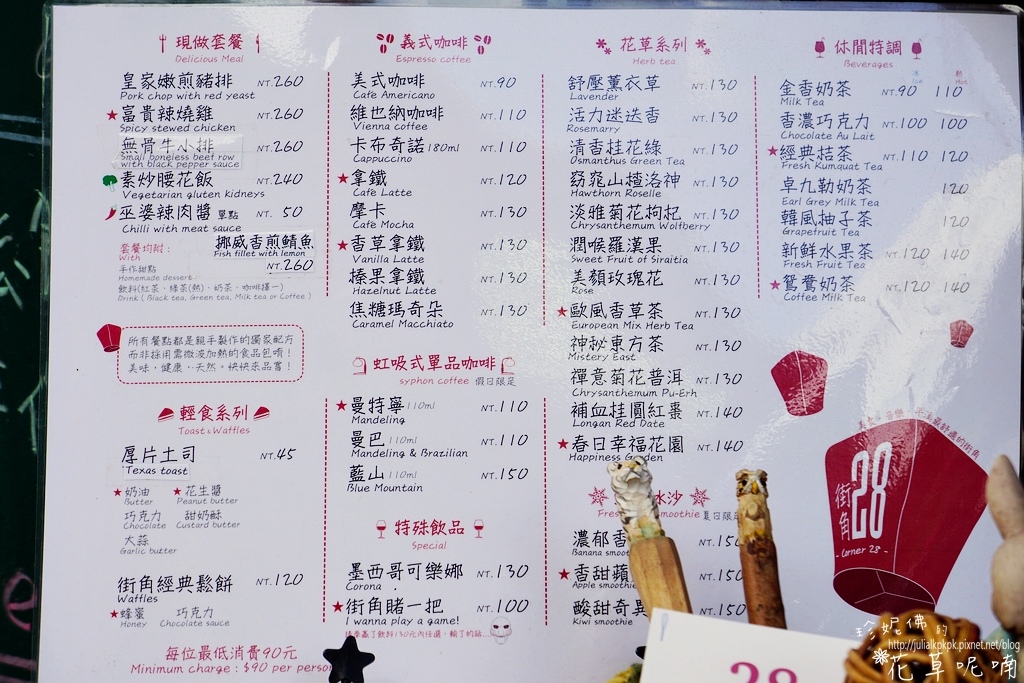 現做套餐
Delicious Meal
皇家嫩煎豬排 NT.260
Pork chop with red yeast
★富貴辣燒雞 NT.260
Spicy stewed chicken
無骨牛小排 NT.260
Small boneless beef row
with black pepper sauce
素炒腰花飯 NT.240
Vegetarian gluten kidneys
巫婆辣肉醬 單點 NT. 50
Chilli with meat sauce
套餐均附:
With
挪威香煎鯖魚
Fish fillet with lemon
NT.260
手作甜點
Homemade dessert
飲料(紅茶、綠茶(熱)、奶茶、咖啡擇一)
Drink ( Black tea, Green tea, Milk tea or Coffee )
所有餐點都是親手製作的獨家配方
而非採用需微波加熱的食品包唷!
美味,健康,天然。快快來品嘗!
輕食系列
Toast&Waffles
厚片土司 NT.45
Texas toast
★奶油 ★花生醬
Butter Peanut butter
巧克力 甜奶酥
Chocolate Custard butter
大蒜
Garlic butter
街角經典鬆餅 NT.120
Waffles
★蜂蜜 巧克力
Honey Chocolate sauce
每位最低消費90元
Minimum charge : $90 per person
義式咖啡
Espresso coffee
美式咖啡 NT.90
Cafe Americano
維也納咖啡 NT.110
Vienna coffee
卡布奇諾 180ml NT.110
Cappuccino
★拿鐵 NT.120
Cafe Latte
摩卡 NT.130
Cafe Mocha
★香草拿鐵 NT.130
Vanilla Latte
榛果拿鐵 NT.130
Hazelnut Latte
焦糖瑪奇朵 NT.130
Caramel Macchiato
虹吸式單品咖啡
syphon coffee 假日限定
★曼特寧 110ml NT.110
Mandeling
曼巴 110ml NT.110
Mandeling & Brazilian
藍山 110ml NT.150
Blue Mountain
特殊飲品
Special
墨西哥可樂娜 NT.130
Corona
★街角賭一把 NT.100
I wanna play a game!
花草系列
Herb tea
舒壓薰衣草 NT.130
Lavender
活力迷迭香 NT.130
Rosemarry
清香桂花綠 NT.130
Osmanthus Green Tea
窈窕山楂洛神 NT.130
Hawthorn Roselle
淡雅菊花枸杞 NT.130
Chrysanthemum Wolfberry
潤喉羅漢果 NT.130
Sweet Fruit of Siraitia
美顏玫瑰花 NT.130
Rose
★歐風香草茶 NT.130
European Mix Herb Tea
神秘東方茶 NT.130
Mistery East
禪意菊花普洱 NT.130
Chrysanthemum Pu-Erh
補血桂圓紅棗 NT.140
Longan Red Date
★春日幸福花園 NT.140
Happiness Garden
冰沙
Fres smoothie 夏日限定
濃郁香 NT.150
Banana smoo
★香甜蘋 NT.150
Apple smoothie
酸甜奇異 NT.150
Kiwi smoothie
休閒特調
Beverages
冰 熱
Ice Hot
金香奶茶 NT.90 110
Milk Tea
香濃巧克力 NT.100 100
Chocolate Au Lait
★經典桔茶 NT.110 120
Fresh Kumquat Tea
卓九勒奶茶 120
Earl Grey Milk Tea
韓風柚子茶 120
Grapefruit Tea
新鮮水果茶 NT.120 140
Fresh Fruit Tea
★鴛鴦奶茶 NT.120 140
Coffee Milk Tea
街角28
- Corner 28 -
28
珍妮佛的
http://julialkpkpk.pixnet.net/blog
花草呢喃